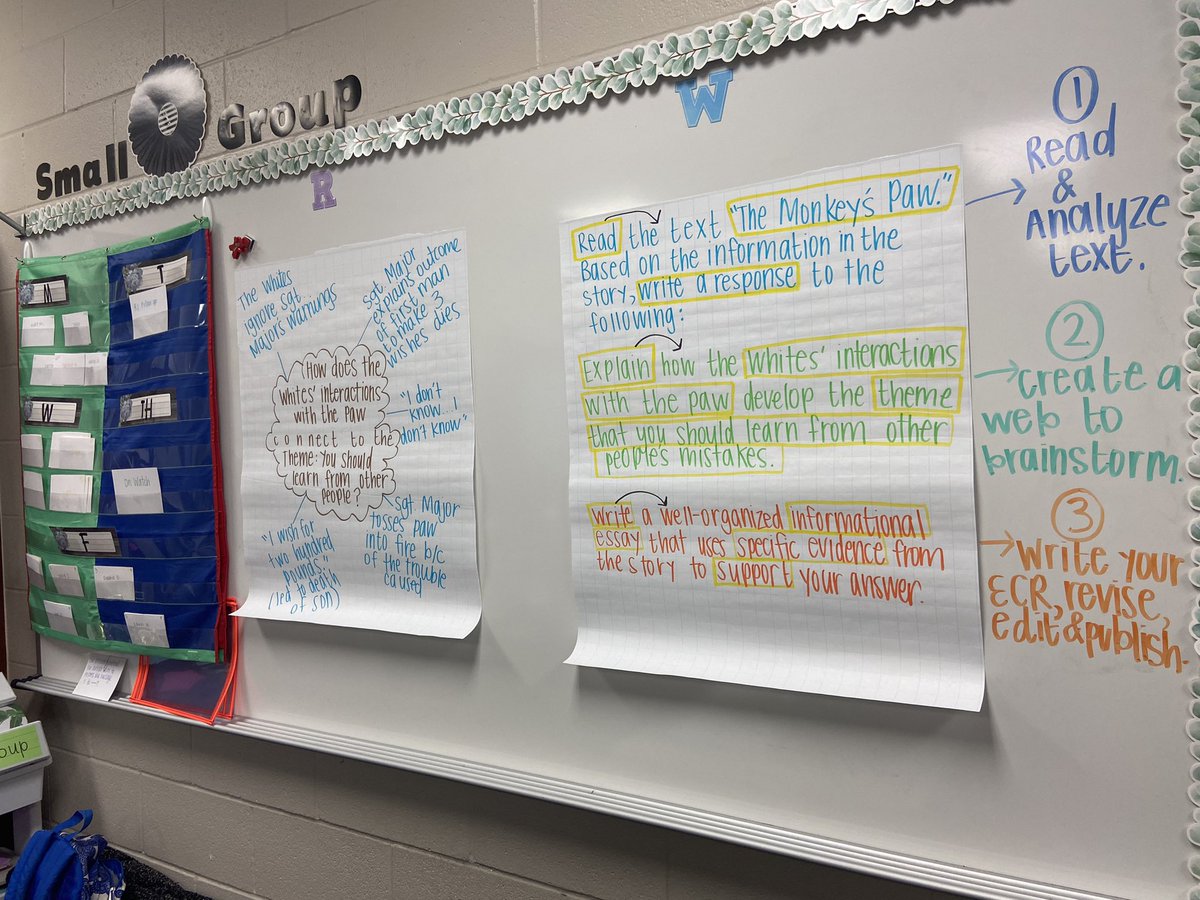 Small Group
R
W
M
T
W
TH
F
On Watch
oup
The Whites
ignore sgt
Majors warnings
Sgt Major
explains outcome
of first man
to make 3
wishes dies
How does the
Whites' interactions
with the paw
connect to the
Theme: You should
learn from other
people?
"I don't
know...I
don't know"
"I wish for
two hundred
pounds"
(led to death
of son)
Sgt Major
tosses paw
into fire b/c
of the trouble
caused
Read the text "The Monkey's Paw."
Based on the information in the
story, write a response to the
following:
Explain how the Whites' interactions
with the paw develop the theme
that you should learn from other
people's mistakes.
Write a well-organized informational
essay that uses specific evidence from
the story to support your answer.
1
Read
&
Analyze
text.
2
Create a
web to
brainstorm.
3
Write your
ECR, revise,
edit & publish.